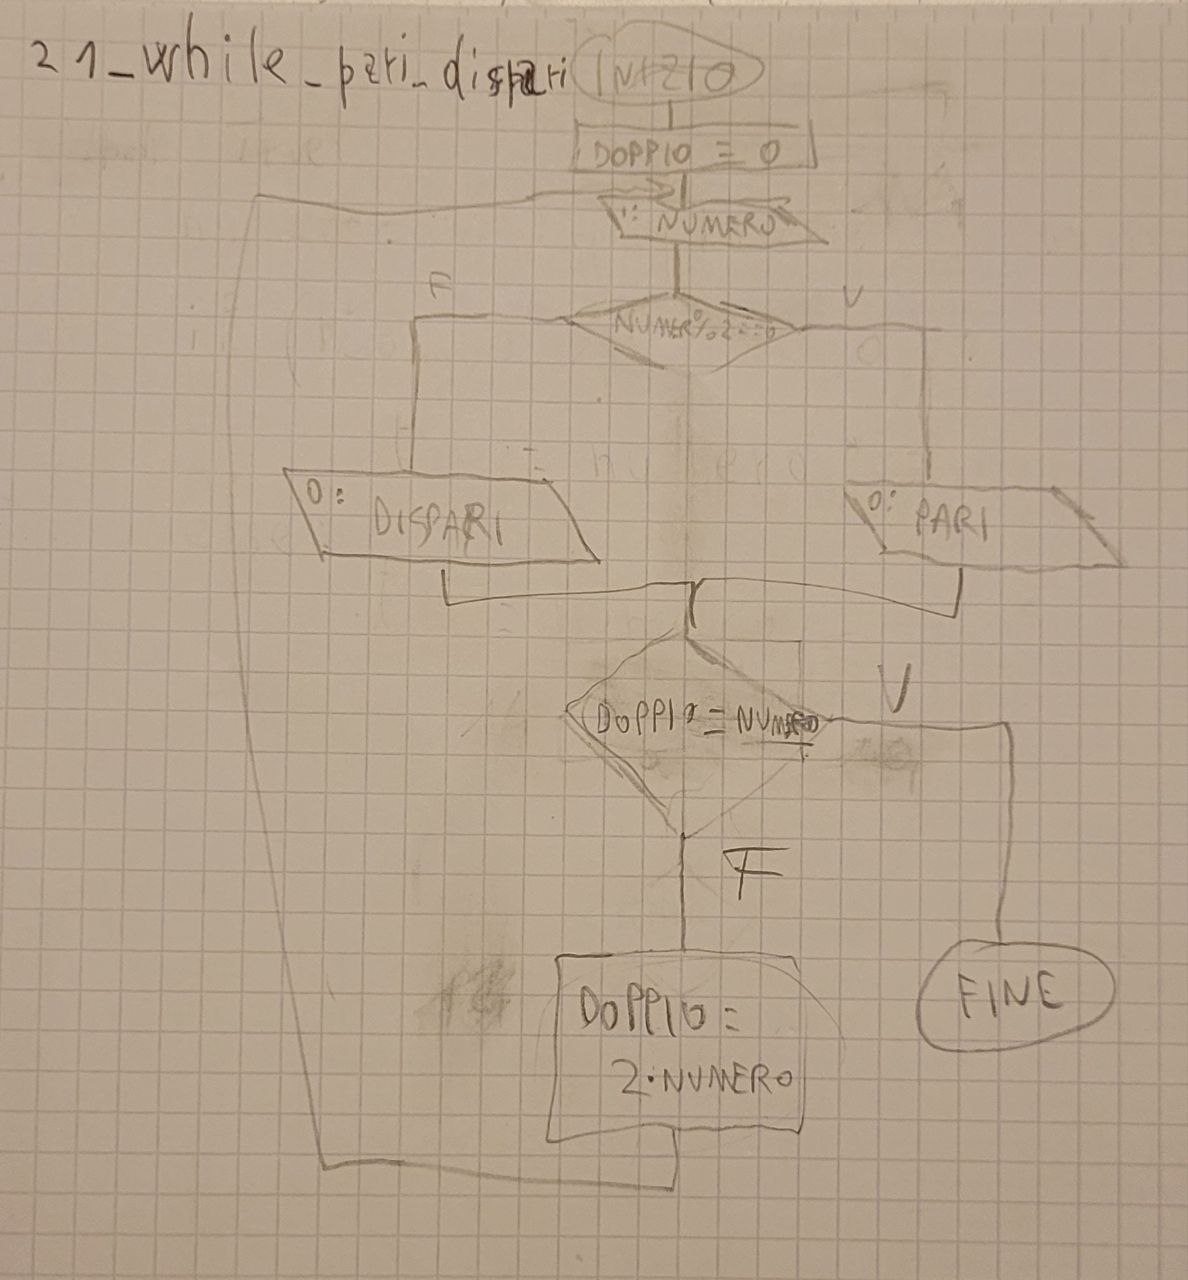 21_while_pari_dispari
INIZIO
DOPPIO = 0
I: NUMERO
F
V
NUMER%2==0
O: DISPARI
O: PARI
DOPPIO = NUMERO
V
F
DOPPIO =
2·NUMERO
FINE